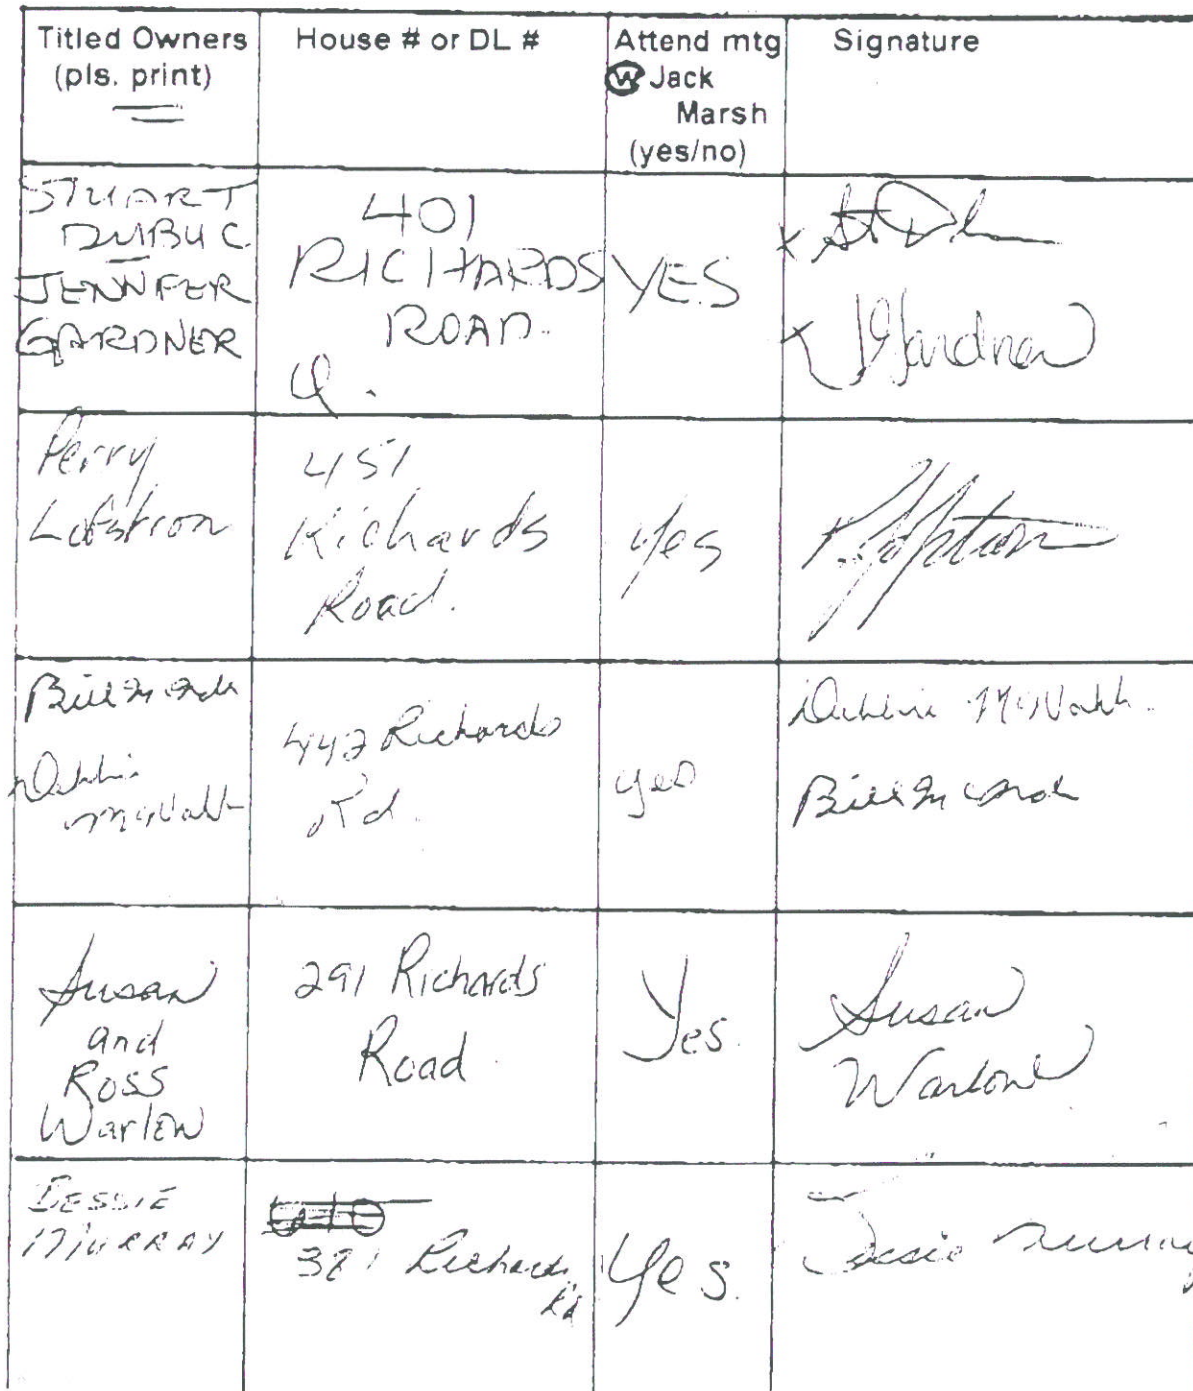 Titled Owners House # or DL # Attend mtg Signature
(pls. print) W Jack
Marsh
(yes/no)
STUART
DUBUC
JENNIFER
GARDNER
401
RICHARDS
ROAD.
YES
JGardner
Perry
Lofstrom
451
Richards
Road.
yes
Bill
Debbie
McNabb
442 Richards
Rd.
yes
Debbie McNabb.
Bill
Susan
and
Ross
Warlow
291 Richards
Road
Yes.
Susan
Warlow
BESSIE
MURRAY
381 Richards
Rd
Yes.
Murray